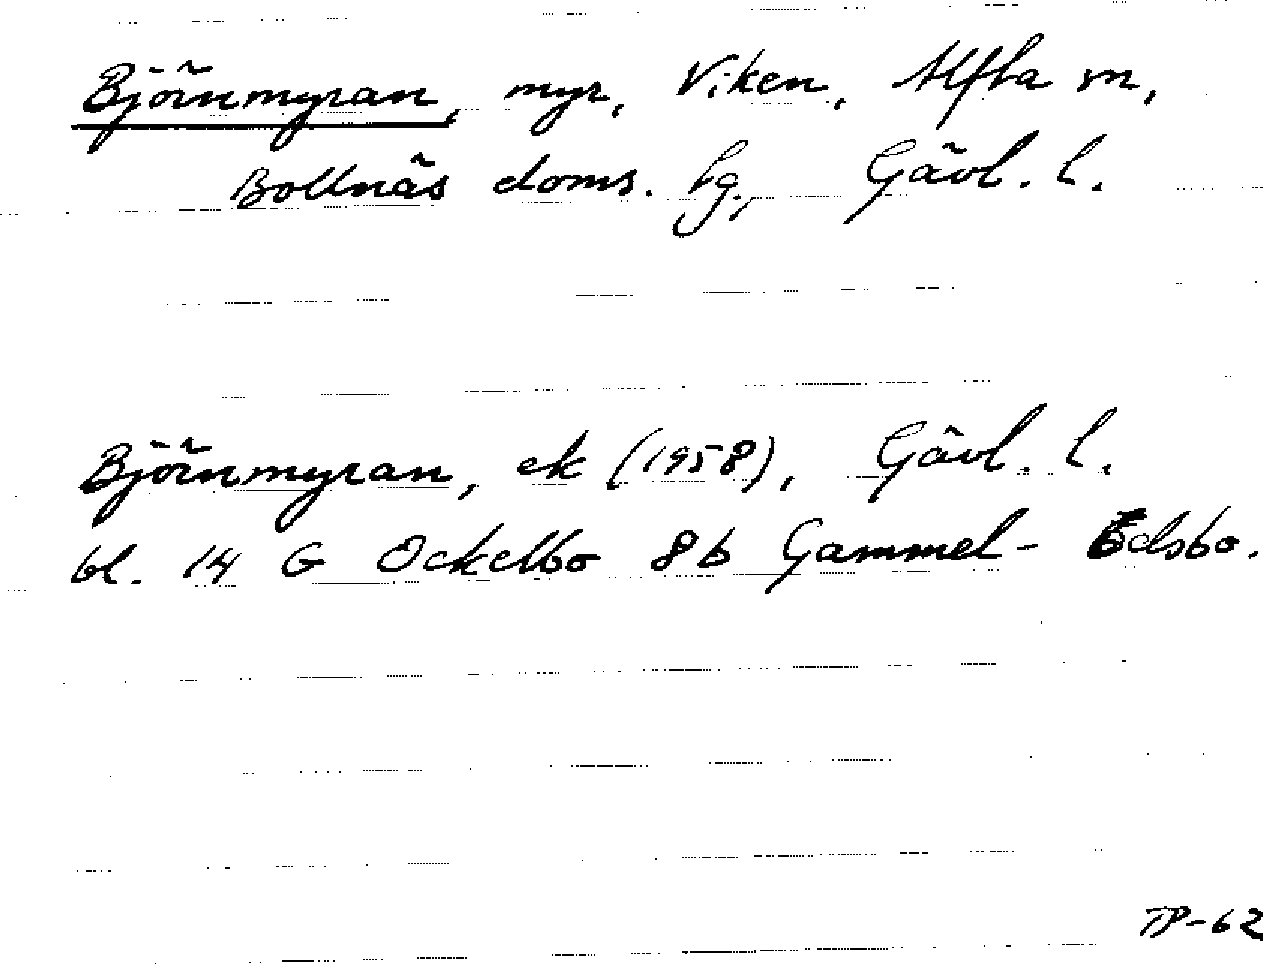 Björnmyran, myr, Viken, Alfta sn,
Bollnäs doms. lg, Gävl. l.
Björnmyran, ek (1958), Gävl. l.
bl. 14 G Ockelbo 8 b Gammel-Edsbo.
TP-62